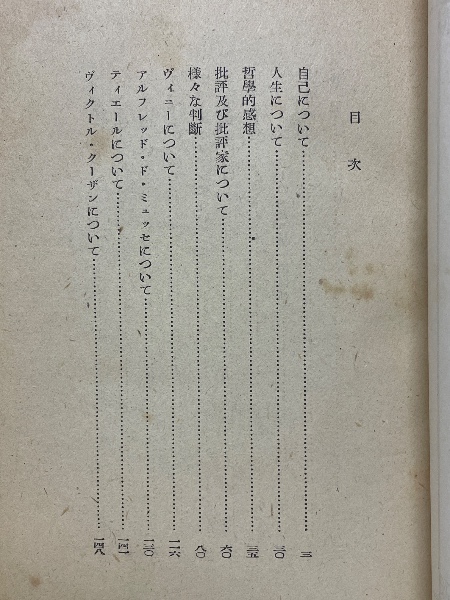 目次
自己について……三
人生について……二〇
哲學的感想……三五
批評及び批評家について……六〇
様々な判斷……八〇
ヴィニーについて……一一六
アルフレッド・ド・ミュッセについて……一三〇
ティエールについて……一四一
ヴィクトル・クーザンについて……一四八